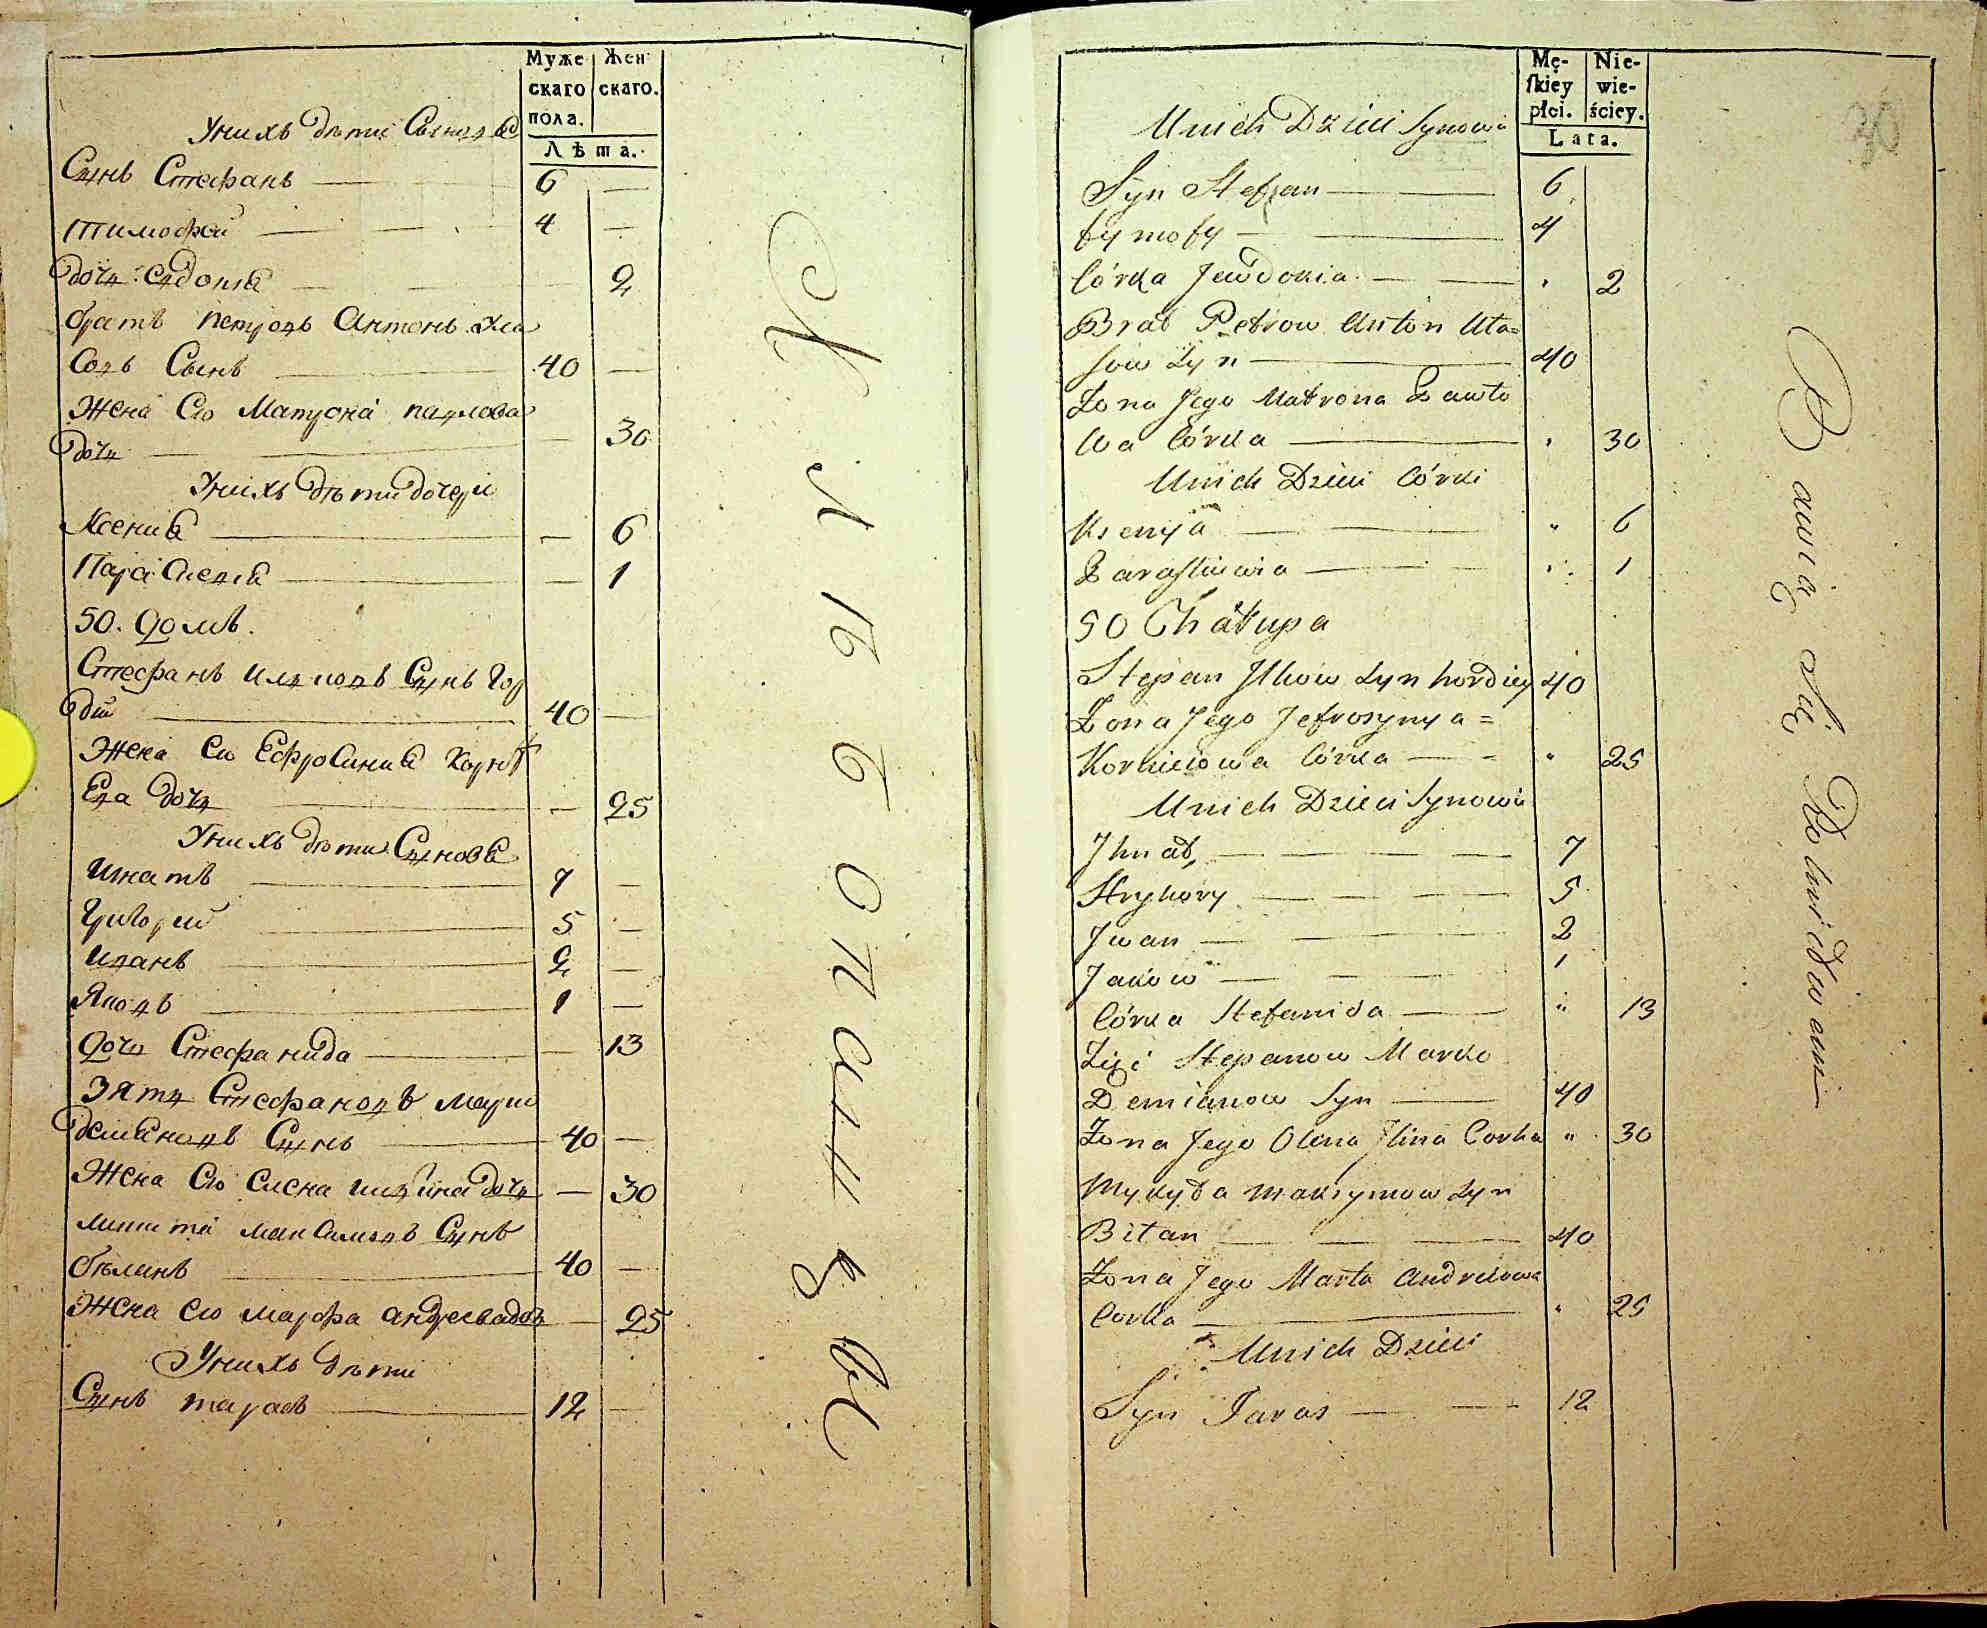 Муже
скаго
пола.
Жен
скаго.
Лѣта.
Унихъ дѣти Сыновья
Сынъ Стефанъ — 6 —
Тимофей — 4 —
дочь Евдокия — 2
братъ Петровъ Антонъ Ула
совъ Сынъ — 40 —
Жена Его Матрона павлова
дочь — 30
Унихъ дѣти дочери
Ксения — 6
Параскевия — 1
50. Домъ.
Стефанъ Ильковъ Сынъ Гор
дий — 40 —
Жена Его Ефросиния Корнѣ
Ева дочь — 25
Унихъ дѣти Сыновья
Игнатъ — 7 —
Григорий — 5 —
Иванъ — 2 —
Яковъ — 1 —
Дочь Стефанида — 13
Зять Стефановъ Марко
демяновъ Сынъ — 40 —
Жена Его Елена Ильина дочь — 30
Микита Максимовъ Сынъ
бѣланъ — 40 —
Жена Его Марфа андреевадоч — 25
Унихъ дѣти
Сынъ тарасъ — 12 —
Хлѣбопашцевъ
Mę-
ſkiey
płci.
Nie-
wie-
ściey.
Lata.
30
Unich Dzieci Synowie
Syn Stefan — 6
tymofy — 4
Córka Jewdokia — " 2
Brat Petrow Anton Uła=
sow Syn — 40
Żona Jego Matrona Pawło
wa Córka — " 30
Unich Dzieci Córki
Ksenyia — " 6
Paraskiewia — " 1
50 Chałupa
Stepan Ilkow Syn hordiey 40
Żona Jego Jefrosynya =
Korniiowa Córka — " 25
Unich Dzieci Synowie
Ihnat — 7
Hryhory — 5
Iwan — 2
Jakow — 1
Córka Stefanida — " 13
Zięć Stepanow Marko
Demianow Syn — 40
Żona Jego Olena Ilina Corka " 30
Mykyta Maksymow Syn
Biłan — 40
Żona Jego Marta Andreiowa
Corka — " 25
Unich Dzieci
Syn Taras — 12
Bawią się Rolnictwem